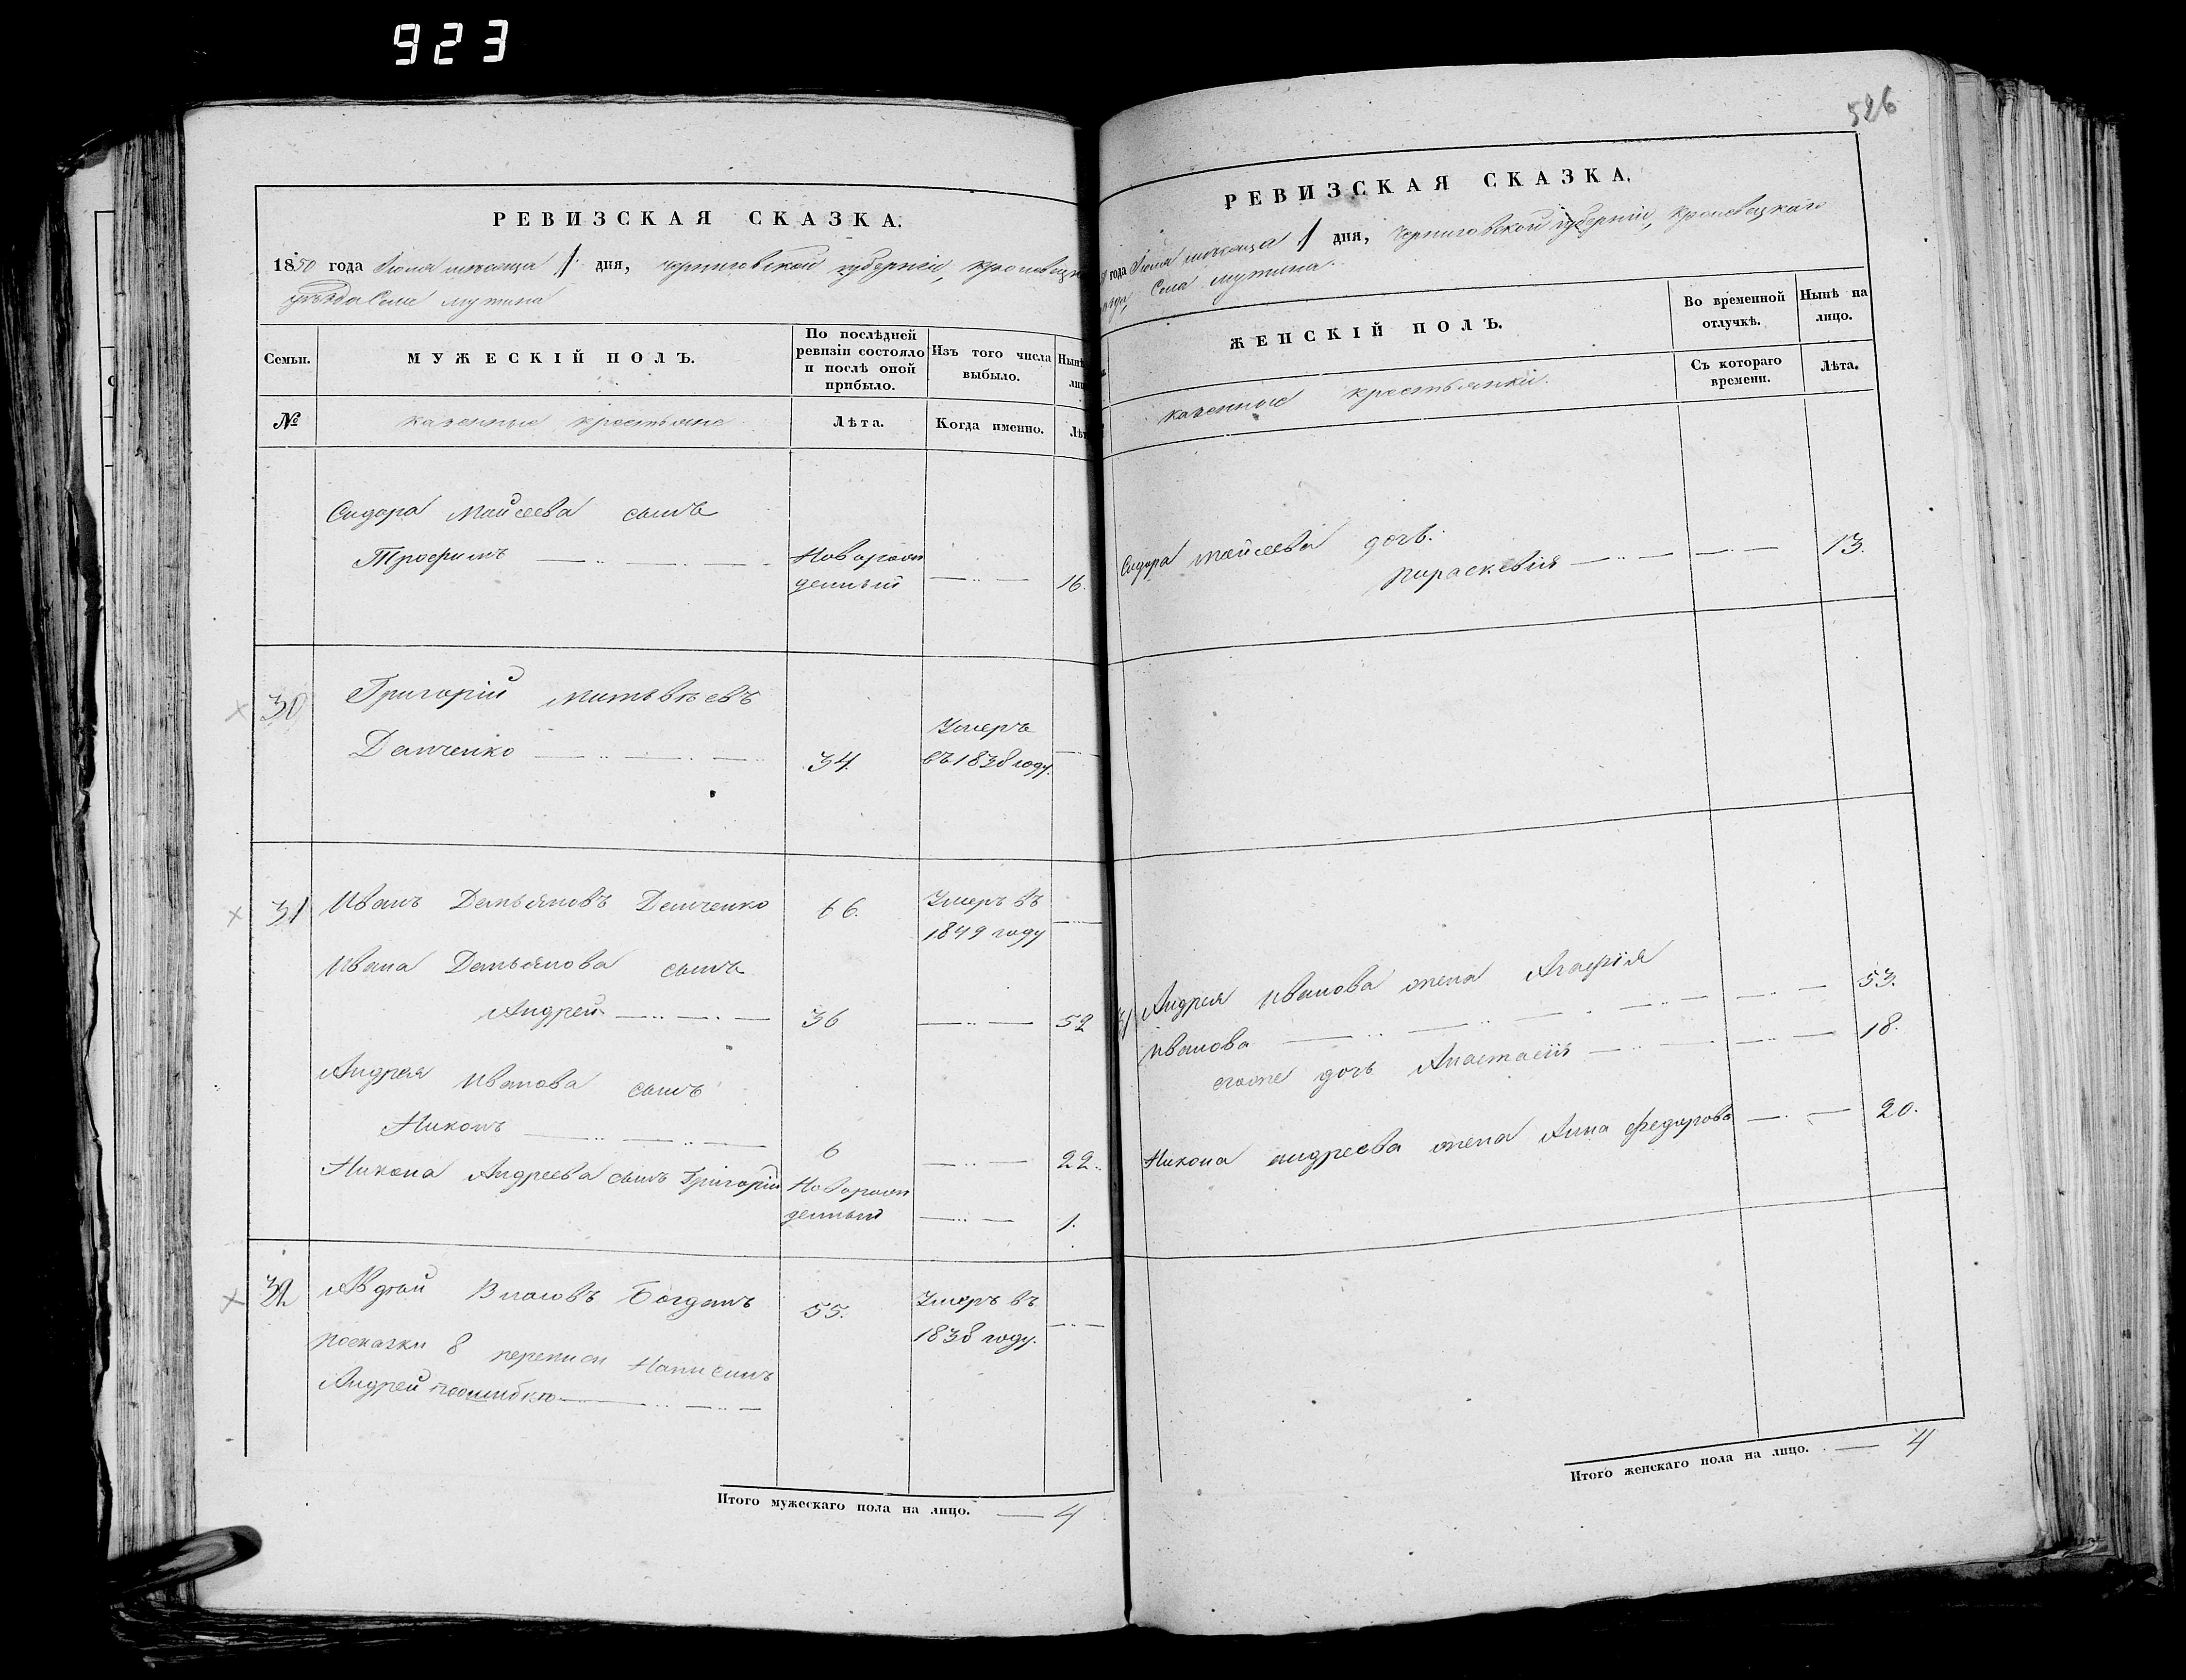 923
РЕВИЗСКАЯ СКАЗКА.
1850 года Июля месяца 1 дня, Черниговской губерніи, Кролевецк
уѣзда Села Мутина
Семьи.
МУЖЕСКІЙ ПОЛЪ.
По послѣдней ревизіи состояло и послѣ оной прибыло.
Изъ того числа выбыло.
Нынѣ
№
казенные крестьяне
Лѣта.
Когда именно.
Лѣт
Сидора Мойсеева сынъ
Трофимъ
Новорож
денный
16.
30
Григорій Матвѣевъ
Демченко
34.
Умеръ
въ 1838 году.
31
Иванъ Демьяновъ Демченко
66.
Умеръ въ
1849 году
Ивана Демьянова сынъ
Андрей
36
52
Андрея Иванова сынъ
Никонъ
6
22.
Никона Андреева сынъ Григорій
Новорож
денный
1.
32
Авдей Власовъ Богданъ
55.
Умеръ въ
1838 году.
посказки 8 переписи Написанъ
Андрей поошибке
Итого мужескаго пола на лицо. 4
526
РЕВИЗСКАЯ СКАЗКА.
года Июля месяца 1 дня, Черниговской губерніи, Кролевецкаго
Села Мутина.
ЖЕНСКІЙ ПОЛЪ.
Во временной отлучкѣ.
Нынѣ на лицо.
казенные крестьянки.
Съ котораго времени.
Лѣта.
Сидора Мойсеева дочь.
Параскевія
13.
31
Андрея Иванова жена Агафія
Иванова
53.
егоже дочь Анастасія
18.
Никона Андреева жена Анна Федорова
20.
Итого женскаго пола на лицо. 4